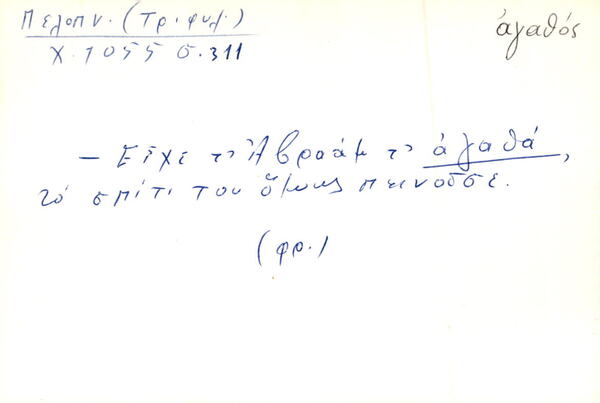 Πελοπν. (Τριφυλ.)
Χ. 1055 σ. 311
ἀγαθός
— Εἶχε τ' Ἀβραάμ τ' ἀγαθά,
τό σπίτι του ὅμως πεινοῦσε.
(φρ.)